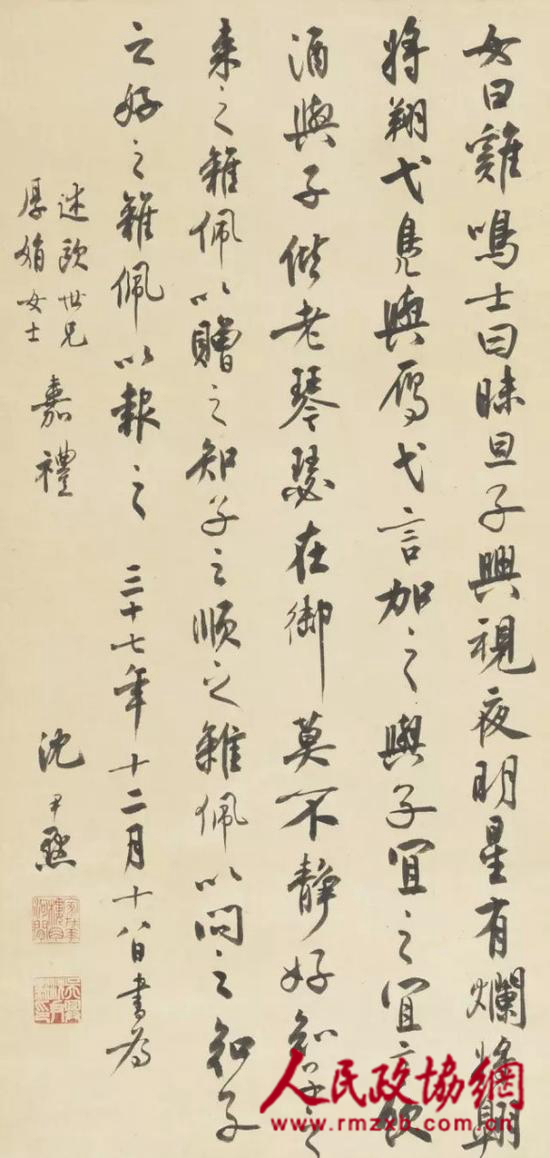 女曰雞鳴士曰昧旦子興視夜明星有爛將翱
將翔弋鳧與鴈弋言加之與子宜之宜言飲
酒與子偕老琴瑟在御莫不靜好知子之
來之雜佩以贈之知子之順之雜佩以問之知子
之好之雜佩以報之 三十七年十二月十八日書為
述歐世兄
厚娟女士
嘉禮
沈尹默
人民政協網
www.rmzxb.com.cn